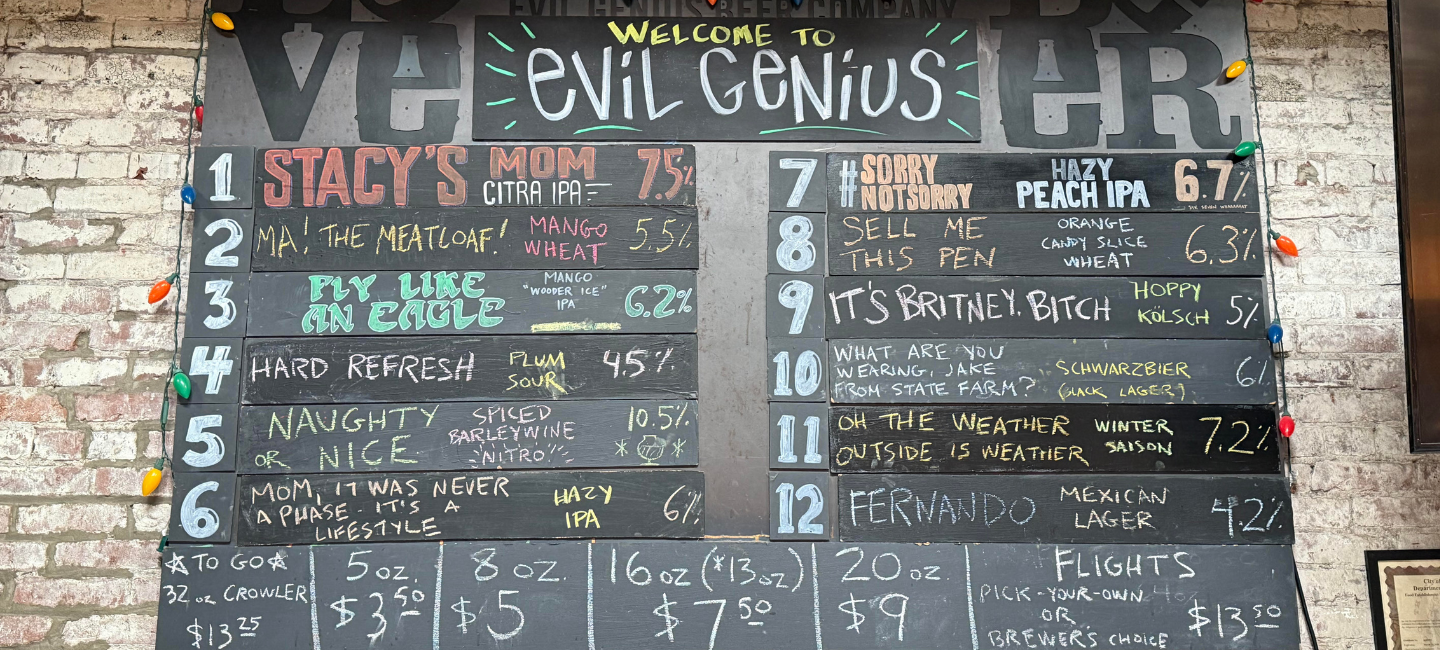 EVIL GENIUS BEER COMPANY
VE
ER
WELCOME TO
EVIL GENIUS
1 STACY'S MOM CITRA IPA 7.5%
2 MA! THE MEATLOAF! MANGO WHEAT 5.5%
3 FLY LIKE AN EAGLE MANGO "WOODER ICE" IPA 6.2%
4 HARD REFRESH PLUM SOUR 4.5%
5 NAUGHTY OR NICE SPICED BARLEYWINE "NITRO" 10.5% * *
6 MOM, IT WAS NEVER A PHASE. IT'S A LIFESTYLE HAZY IPA 6%
7 #SORRY NOTSORRY HAZY PEACH IPA 6.7%
8 SELL ME THIS PEN ORANGE CANDY SLICE WHEAT 6.3%
9 IT'S BRITNEY, BITCH HOPPY KÖLSCH 5%
10 WHAT ARE YOU WEARING, JAKE FROM STATE FARM? SCHWARZBIER (BLACK LAGER) 6%
11 OH THE WEATHER OUTSIDE IS WEATHER WINTER SAISON 7.2%
12 FERNANDO MEXICAN LAGER 4.2%
TO GO
32 oz CROWLER
$13.25
5 oz.
$3.50
8 oz.
$5
16 oz (*13 oz)
$7.50
20 oz.
$9
FLIGHTS
PICK-YOUR-OWN
OR
BREWER'S CHOICE
$13.50